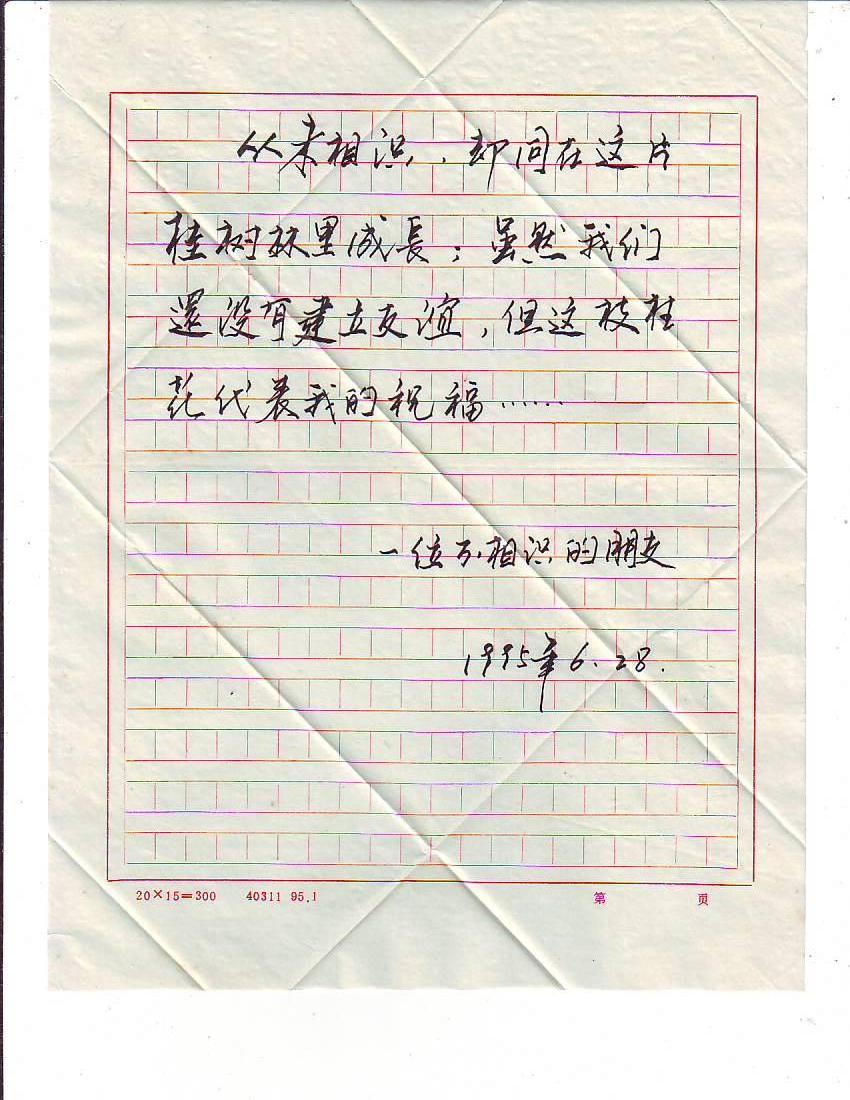 从未相识，却同在这片
桂树林里成長；虽然我们
還没有建立友谊，但这枝桂
花代表我的祝福……
一位不相识的朋友
1995年6.28.
20×15=300 40311 95.1 第 页